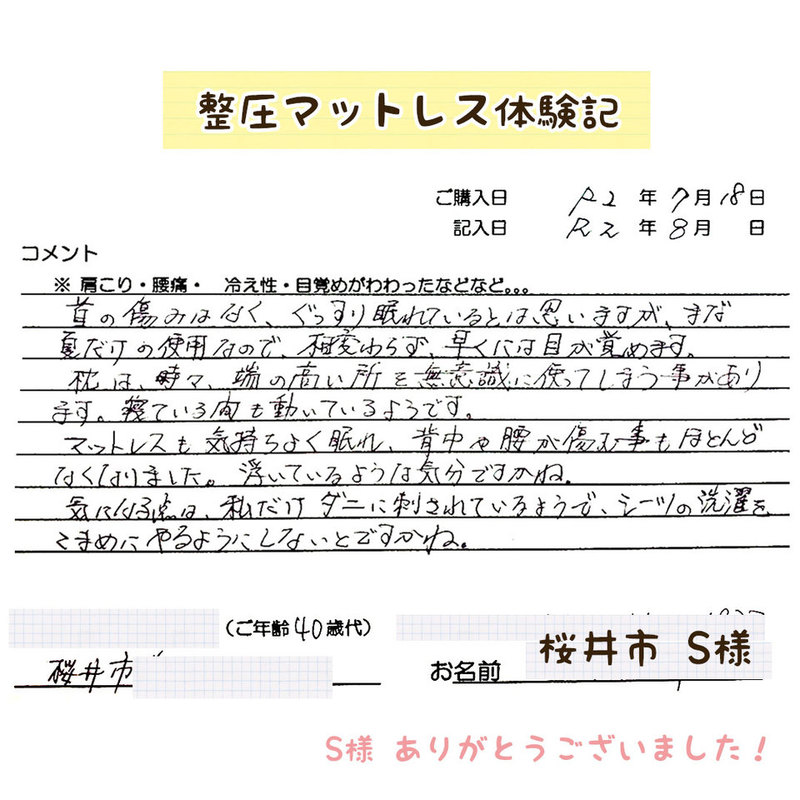 整圧マットレス体験記
ご購入日 R2年7月18日
記入日 R2年8月 日
コメント
※ 肩こり・腰痛・ 冷え性・目覚めがわわったなどなど。。。
首の傷みはなく、ぐっすり眠れているとは思いますが、まだ
夏だけの使用なので、相変わらず、早くには目が覚めます。
枕は、時々、端の高い所を無意識に使ってしまう事があり
ます。寝ている間も動いているようです。
マットレスも気持ちよく眠れ、背中や腰が傷む事もほとんど
なくなりました。浮いているような気分ですかね。
気になる点は、私だけダニに刺されているようで、シーツの洗濯を
こまめにやるようにしないとですかね。
(ご年齢40歳代)
桜井市
お名前 桜井市 S様
S様 ありがとうございました!